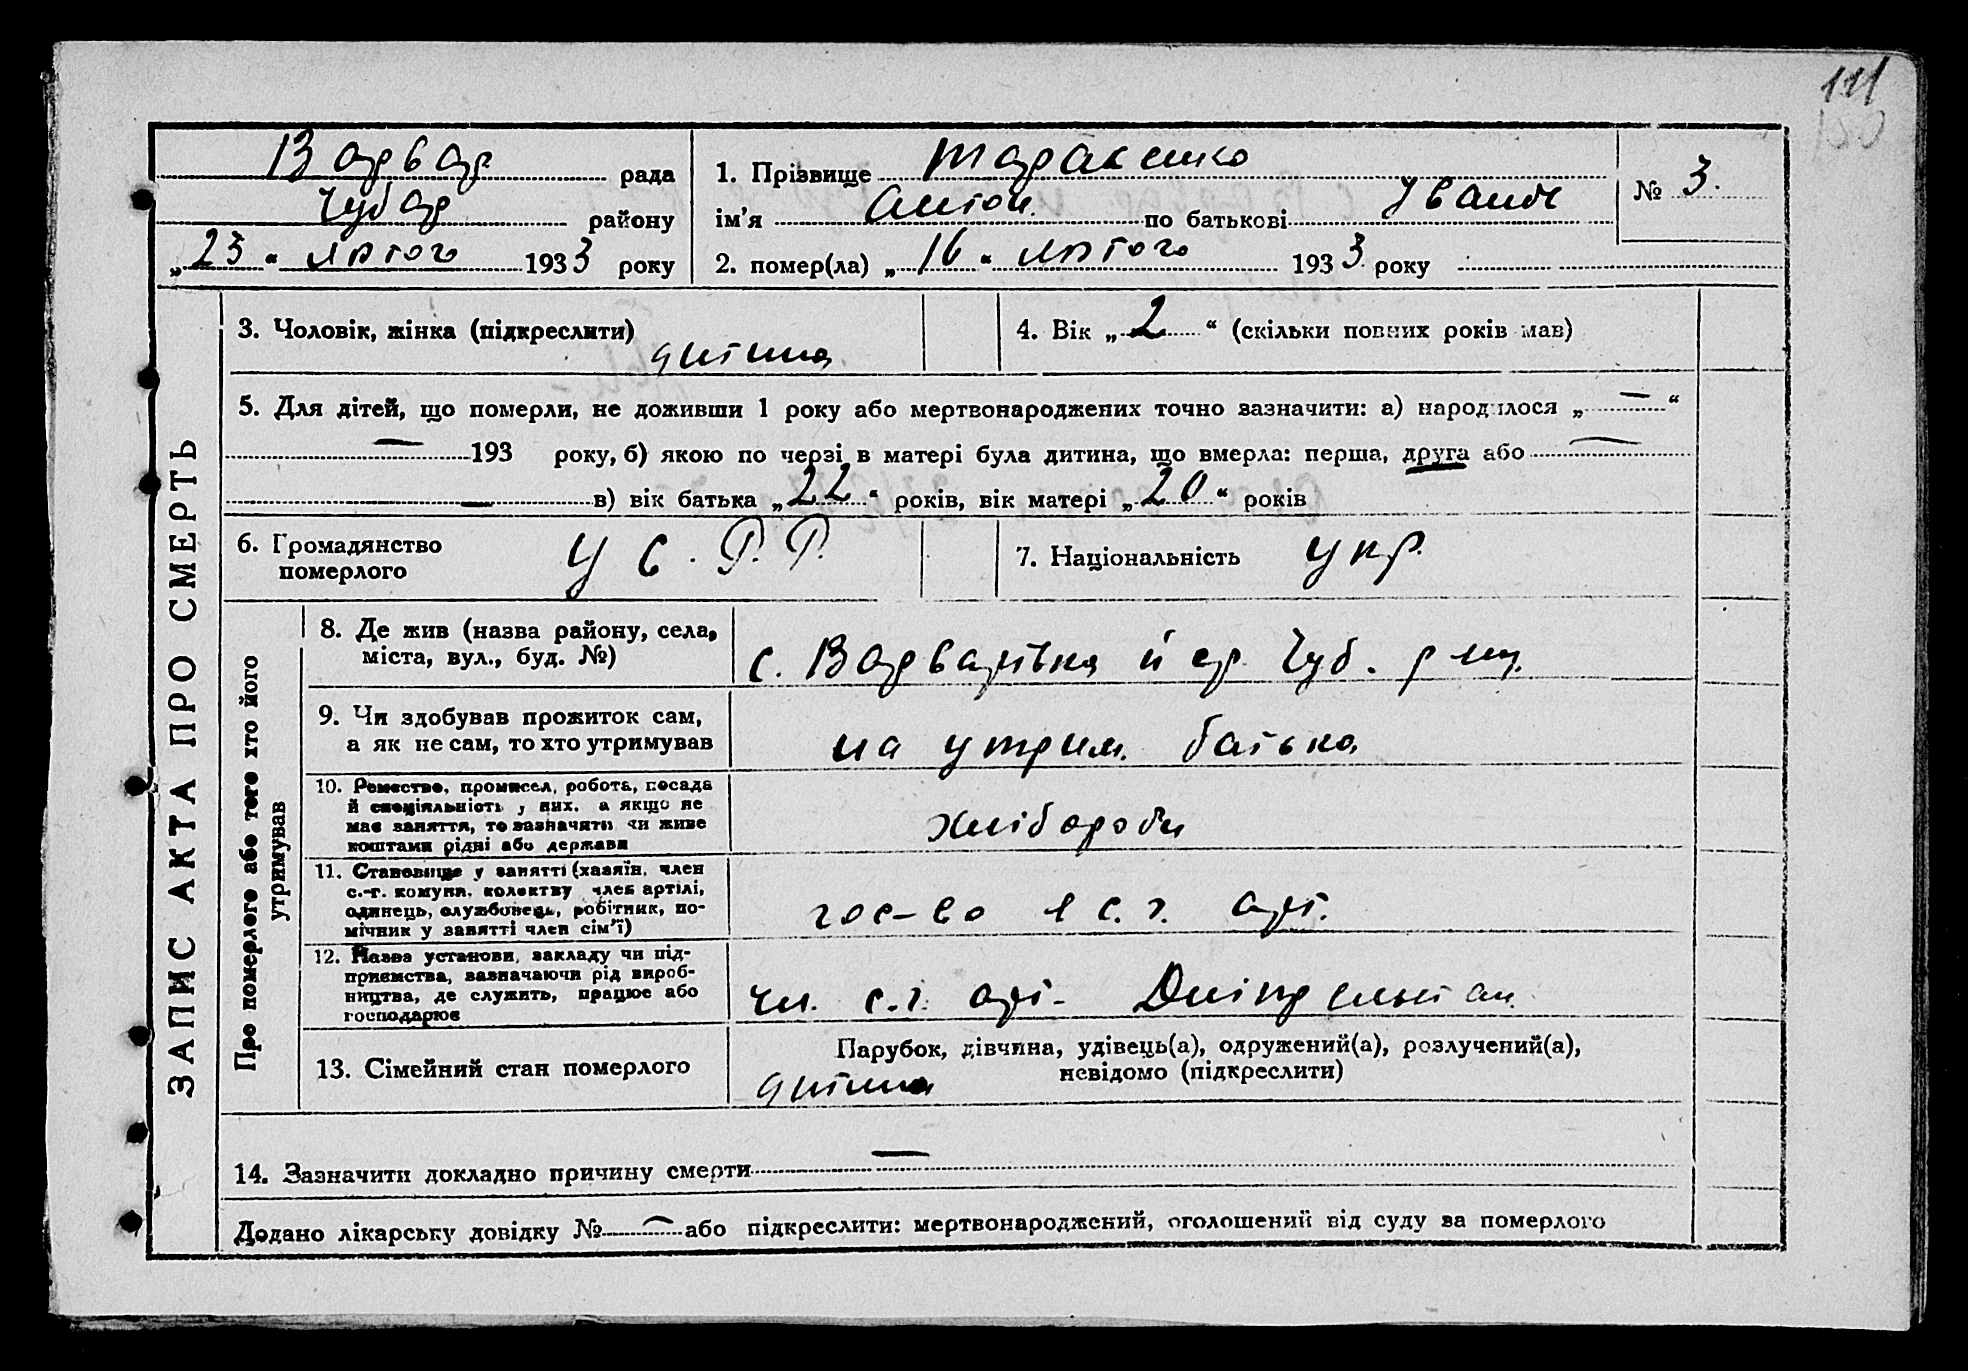 111
Варвар рада
Чубар району
„23“ лютого 1933 року
1. Прізвище Тараненко
ім’я Антон по батькові Іванов
2. помер(ла) „16“ лютого 1933 року
№ 3.
ЗАПИС АКТА ПРО СМЕРТЬ
3. Чоловік, жінка (підкреслити)
дитина
4. Вік „2“ (скільки повних років мав)
5. Для дітей, що померли, не доживши 1 року або мертвонароджених точно зазначити: а) народилося „—“
— 193 року, б) якою по черзі в матері була дитина, що вмерла: перша, друга або —
— в) вік батька „22“ років, вік матері „20“ років
6. Громадянство
померлого
У С. Р. Р.
7. Національність укр.
Про померлого або того хто його
утримував
8. Де жив (назва району, села,
міста, вул., буд. №)
с. Варварівка Чуб.
9. Чи здобував прожиток сам,
а як не сам, то хто утримував
на утрим. батька
10. Ремество, промисел, робота, посада
й спеціяльність у них, а якщо не
має заняття, то зазначити чи живе
коштами рідні або держави
хлібороби
11. Становище у занятті (хазяїн, член
с.-г. комуни, колективу член артілі,
одинець, службовець, робітник, по-
мічник у занятті член сім’ї)
гос-во с.г. арт.
12. Назва установи, закладу чи під-
приємства, зазначаючи рід вироб-
ництва, де служить, працює або
господарює
чл. с.г. арт.
13. Сімейний стан померлого
Парубок, дівчина, удівець(а), одружений(а), розлучений(а),
невідомо (підкреслити)
дитина
14. Зазначити докладно причину смерти —
Додано лікарську довідку № — або підкреслити: мертвонароджений, оголошений від суду за померлого